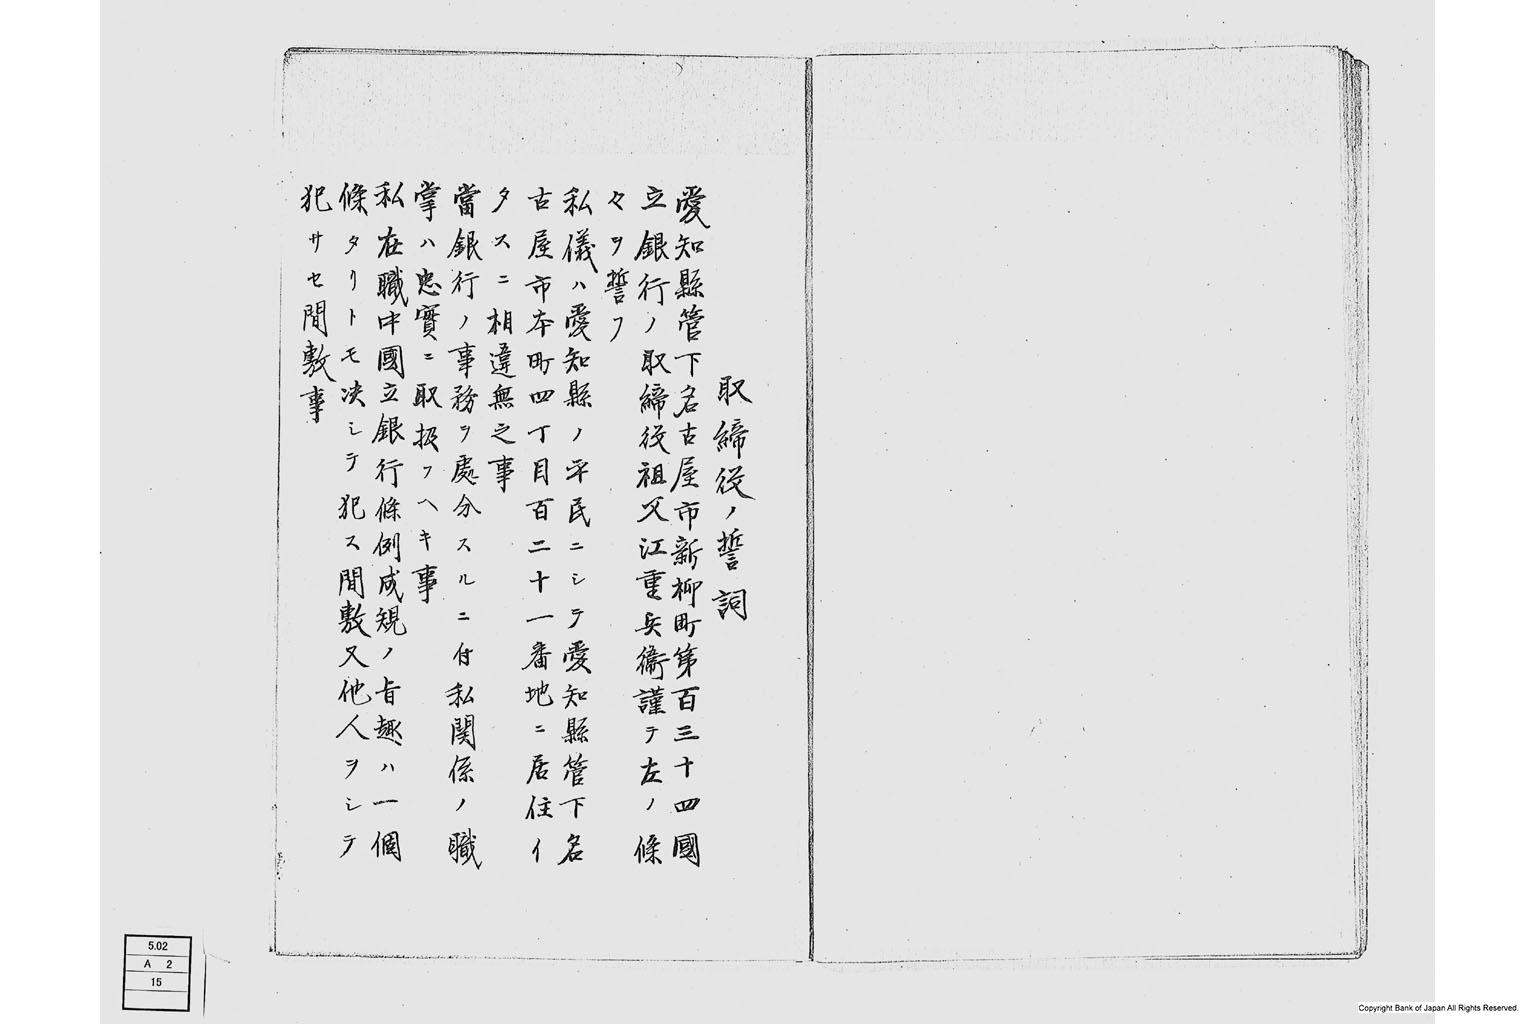 取締役ノ誓詞
愛知縣管下名古屋市新柳町第百三十四國
立銀行ノ取締役祖父江重兵衞謹テ左ノ條
々ヲ誓フ
私儀ハ愛知縣ノ平民ニシテ愛知縣管下名
古屋市本町四丁目百二十一番地ニ居住イ
タスニ相違無之事
當銀行ノ事務ヲ處分スルニ付私関係ノ職
掌ハ忠實ニ取扱フヘキ事
私在職中國立銀行條例成規ノ旨趣ハ一個
條タリトモ决シテ犯ス間敷又他人ヲシテ
犯サセ間敷事
5.02
A 2
15
Copyright Bank of Japan All Rights Reserved.